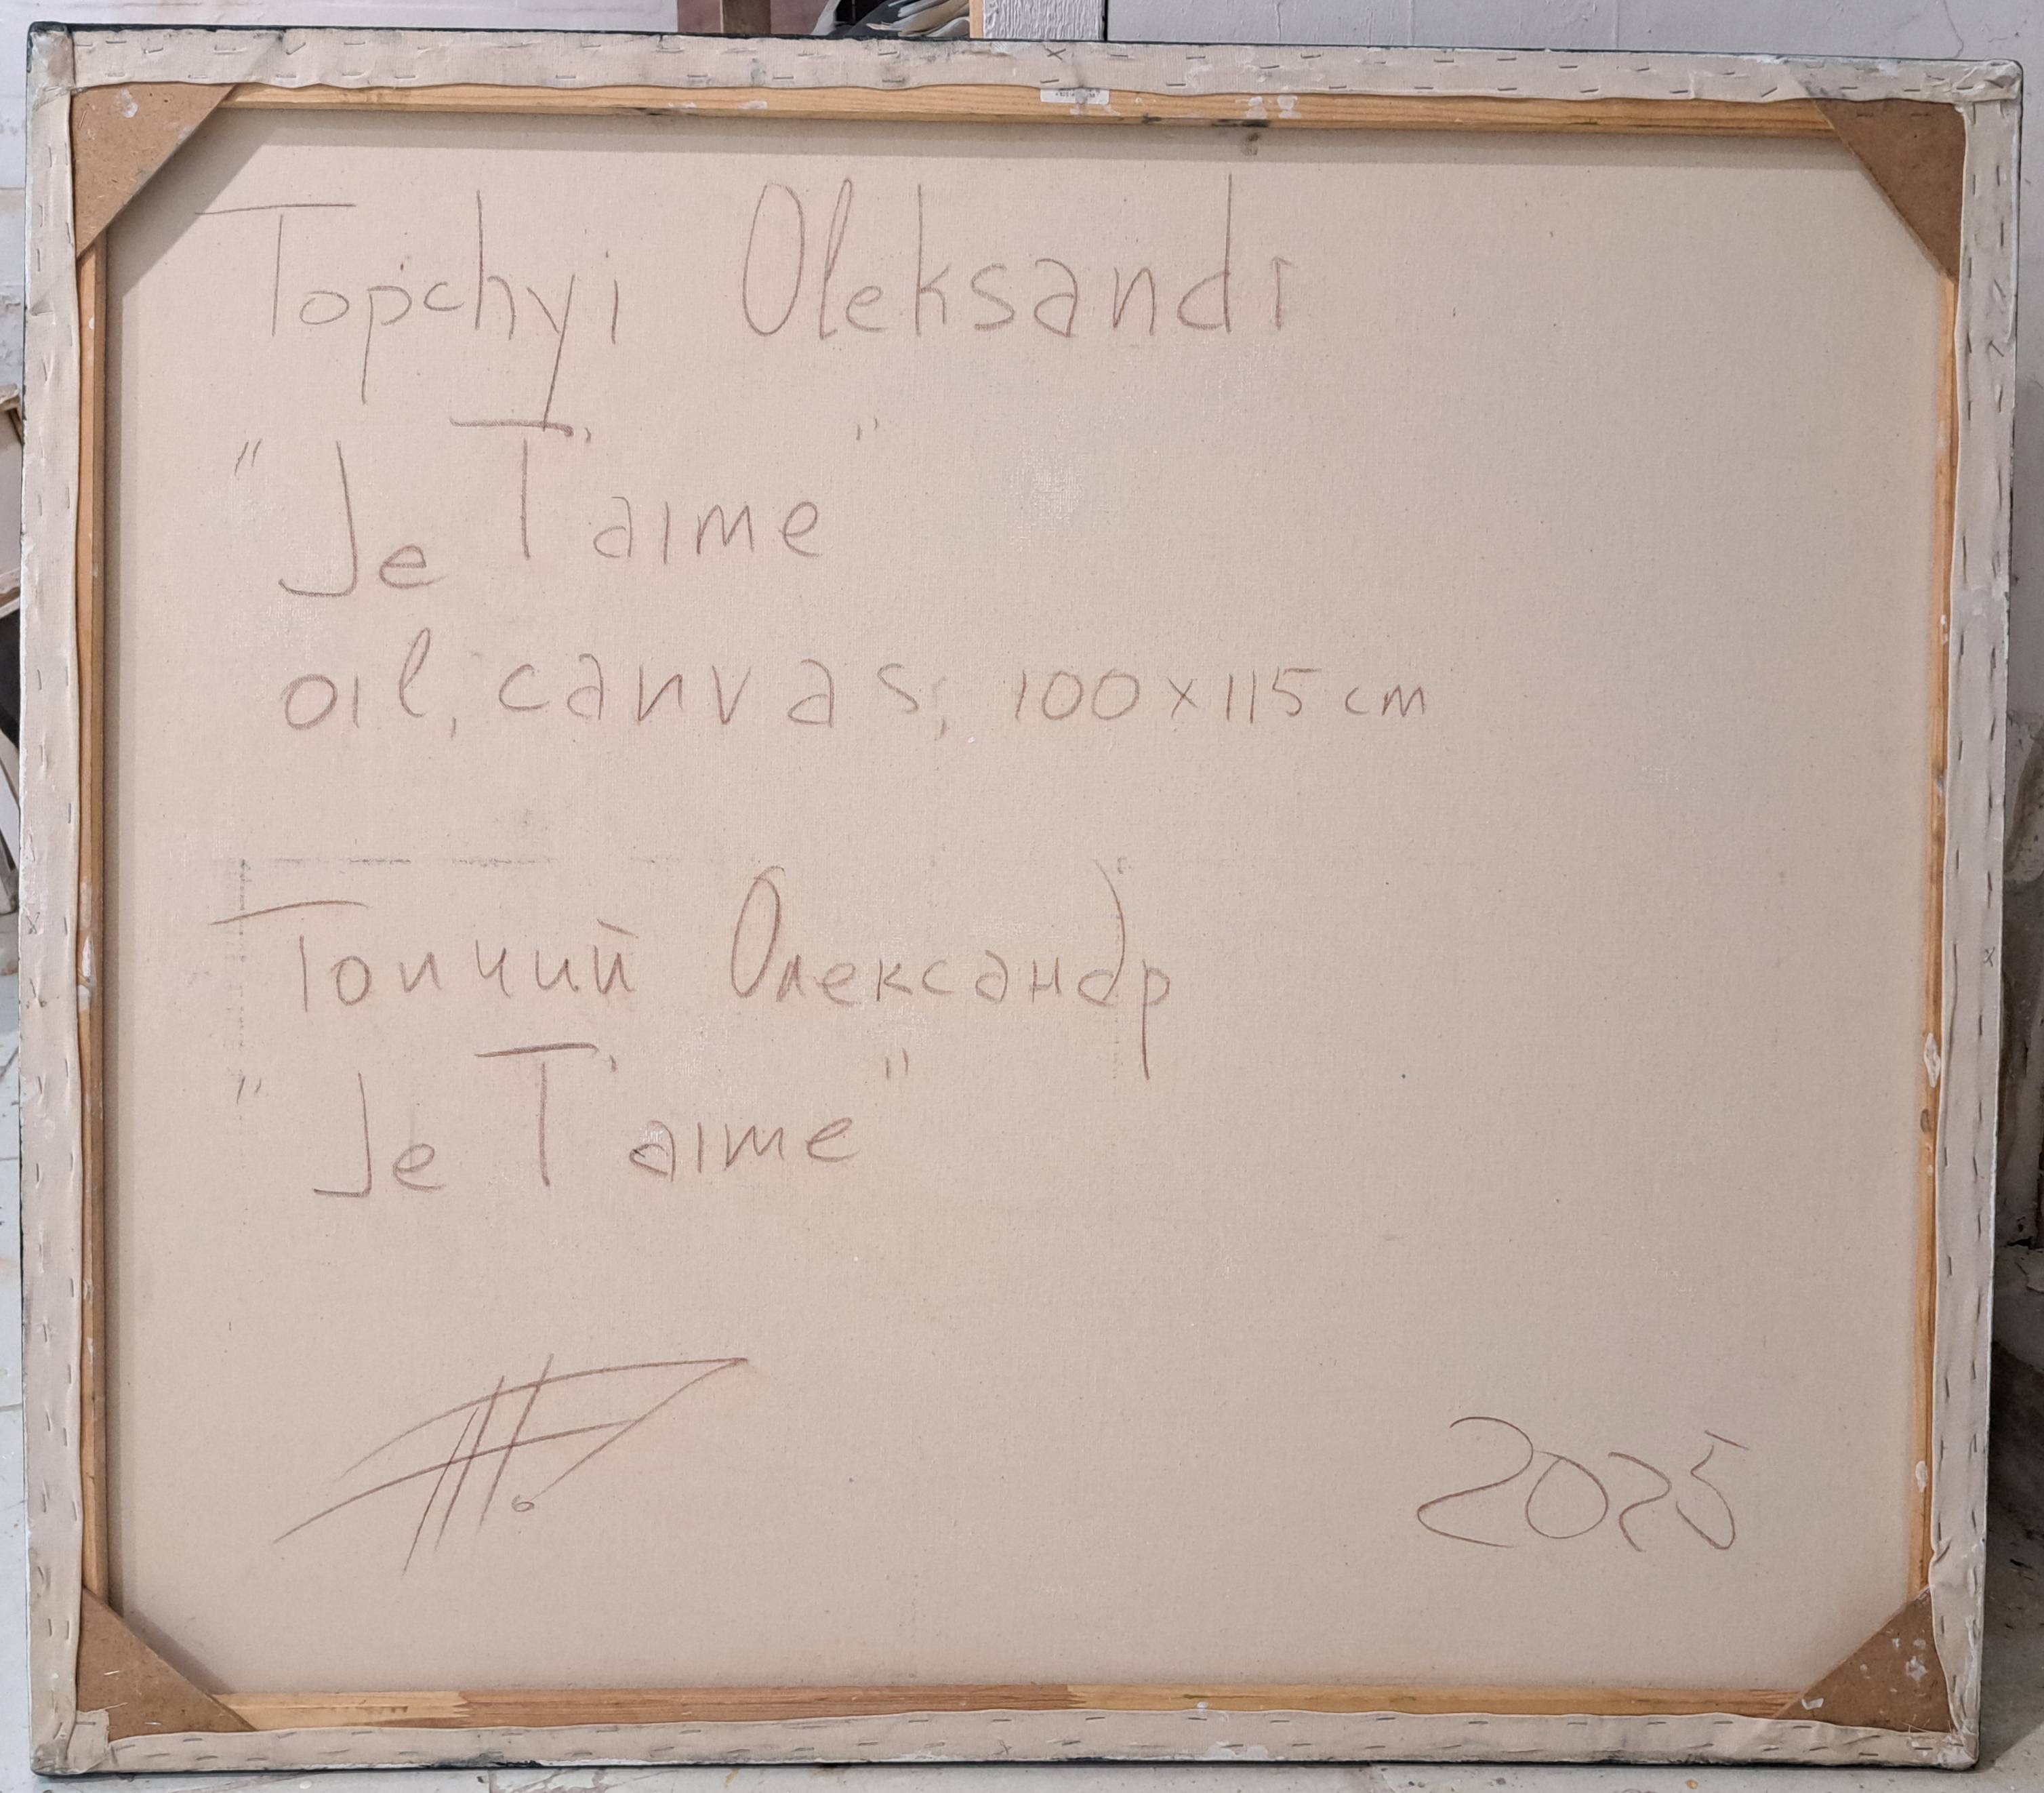 Topchyi Oleksandr
"Je T'aime"
oil, canvas, 100x115 cm
Топчий Олександр
"Je T'aime"
2025